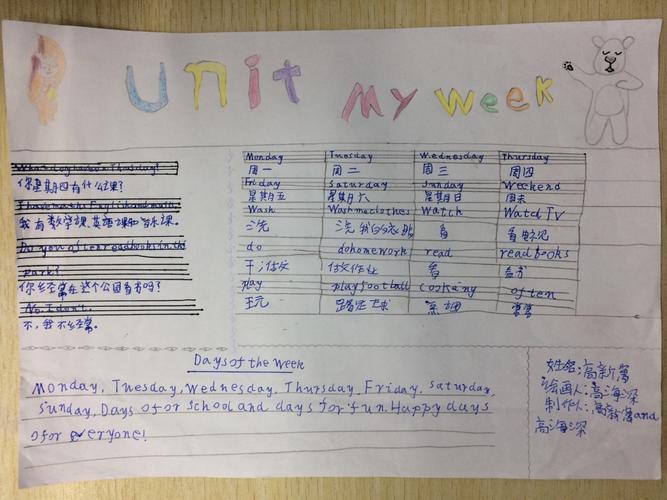 Unit My Week
What day is it on Thursday?
你星期四有什么课?
I have math, English and music.
我有数学课,英语课和音乐课。
Do you often read books in this
park?
你经常在这个公园看书吗?
No. I don't.
不,我不经常。
Monday Tuesday Wednesday Thursday
周一 周二 周三 周四
Friday Saturday Sunday Weekend
星期五 星期六 星期日 周末
Wash Wash my clothes Watch Watch TV
洗 洗我的衣服 看 看电视
do do homework read read books
干;做 做作业 看 看书
play play football cooking often
玩 踢足球 烹调 常常
Days of the Week
Monday, Tuesday, Wednesday, Thursday, Friday, Saturday,
Sunday, Days ofor school and days for fun. Happy days
ofor everyone!
姓名:高新
绘画人:高海深
制作人:高新 and
高海深